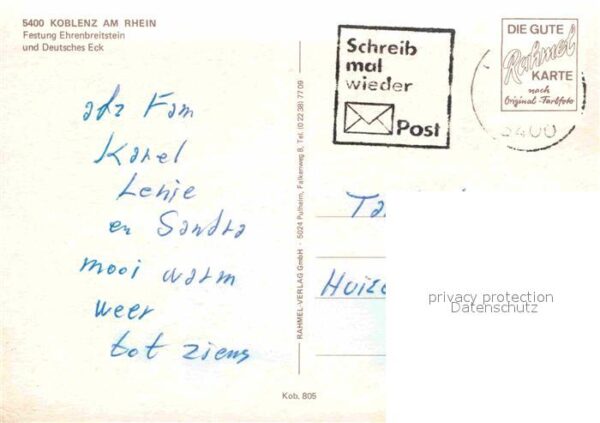 5400 KOBLENZ AM RHEIN
Festung Ehrenbreitstein
und Deutsches Eck
Fam
Karel
Lenie
en Sandra
mooi warm
weer
tot ziens
RAHMEL-VERLAG GmbH · 5024 Pulheim, Falkenweg 8, Tel. (0 22 38) 77 09
Kob. 805
Schreib
mal
wieder
Post
DIE GUTE
Rahmel
KARTE
nach
Original-Farbfoto
5400
privacy protection
Datenschutz